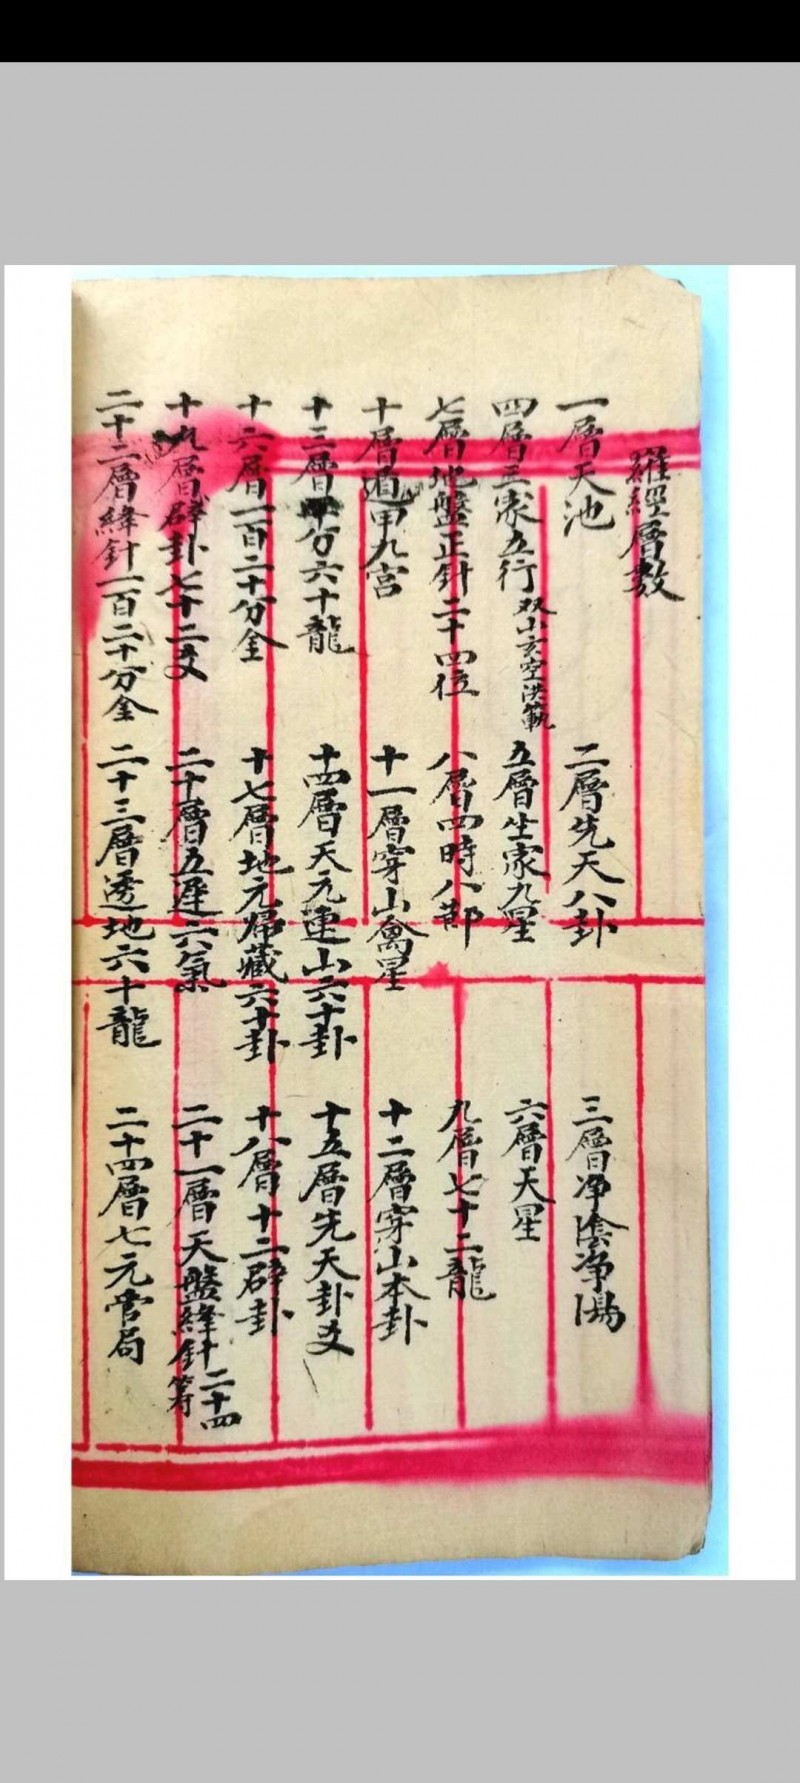 羅經層數
一層天池
二層先天八卦
三層净陰净陽
四層三家五行 双山玄空洪範
五層坐家九星
六層天星
七層地盤正針二十四位
八層四時八節
九層七十二龍
十層遁甲九宮
十一層穿山禽星
十二層穿山本卦
十三層分六十龍
十四層天元連山六十卦
十五層先天卦爻
十六層一百二十分金
十七層地元歸藏六十卦
十八層十二辟卦
十九層辟卦七十二爻
二十層五運六氣
二十一層天盤縫針二十四
二十二層縫針一百二十分金
二十三層透地六十龍
二十四層七元管局